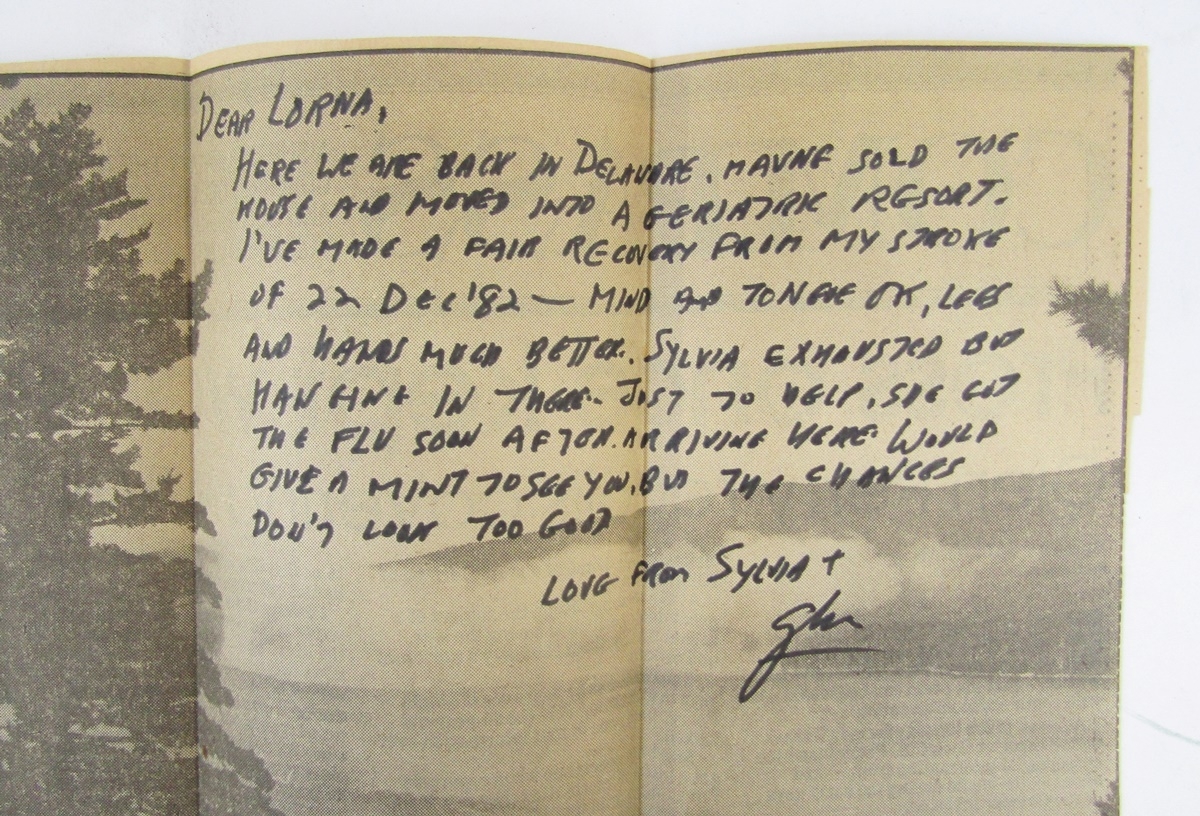 DEAR LORNA,
HERE WE ARE BACK IN DELAWARE. HAVING SOLD THE
HOUSE AND MOVED INTO A GERIATRIC RESORT.
I'VE MADE A FAIR RECOVERY FROM MY STROKE
OF 22 DEC '82 — MIND AND TONGUE OK, LEGS
AND HANDS MUCH BETTER. SYLVIA EXHAUSTED BUT
HANGING IN THERE. JUST TO HELP, SHE GOT
THE FLU SOON AFTER ARRIVING HERE. WOULD
GIVE A MINT TO SEE YOU, BUT THE CHANCES
DON'T LOOK TOO GOOD
LOVE FROM SYLVIA +